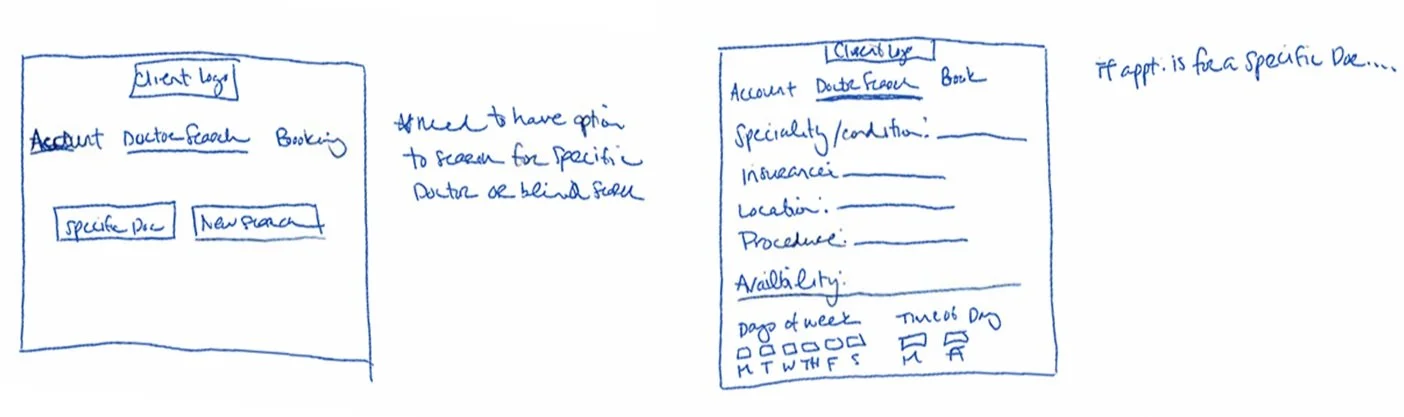 Client Logo
Account Doctor Search Booking
Specific Doc New Search
*need to have option
to search for specific
Doctor or blind
Client Logo
Account Doctor Search Book
Speciality/condition:
Insurance:
Location:
Procedure:
Availbility:
Days of week Time of Day
M T W TH F S M A
If appt. is for a specific Doc....